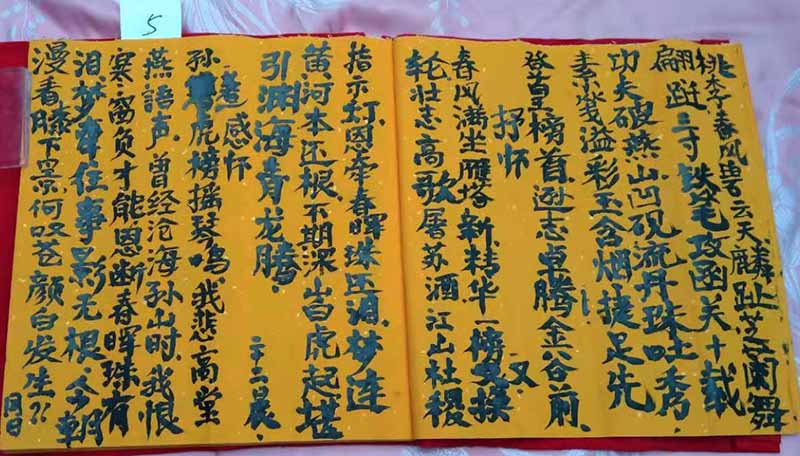 桃李春风碧云天麟趾芝兰舞
翩跹三寸铁笔攻函关十载
功夫破燕山凹砚流丹珠吐秀.
素笺溢彩玉含烟捷足先
登皇榜首逊志卓腾金谷前.
抒怀 又.
春风满坐雁塔新.精华一榜操
轮壮志高歌屠苏酒江山社稷
指示灯.恩牵春晖珠还.梦连
黄河本还根.不期深山白虎起堪
引渊海青龙腾. 二十二晨.
感怀
孙虎榜摇琴鸣我悲高堂
燕語声.曾经沧海孙山时.我恨
寒窗负才能恩断春晖珠有
泪.梦牵往事影无根.今朝
漫看膝下景何叹苍颜白发生?? 同日
5